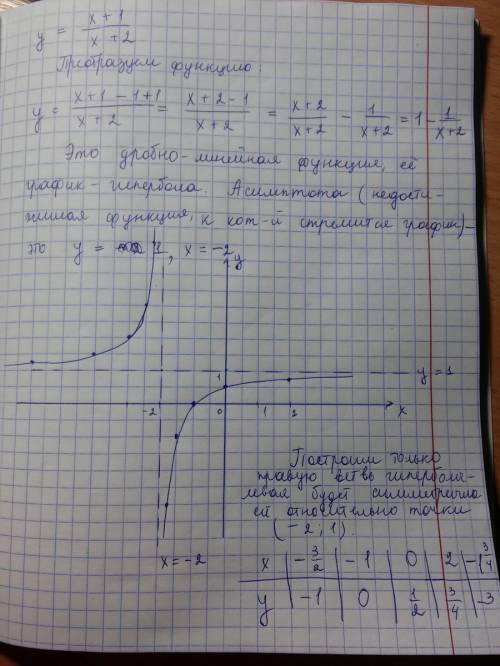 y = (x + 1)/(x + 2)
Преобразуем функцию:
y = (x+1 -1+1)/(x+2) = (x+2-1)/(x+2) = (x+2)/(x+2) - 1/(x+2) = 1 - 1/(x+2)
Это дробно-линейная функция, её
график - гипербола. Асимптота (недости-
жимая функция, к кот-й стремится график) -
это y = 1, x = -2
y
1
y = 1
-2
0
1
2
x
Построим только
правую ветвь гиперболы-
левая будет симметрична
ей относительно точки
(-2; 1).
x = -2
x | -3/2 | -1 | 0 | 2 | -1 3/4
y | -1 | 0 | 1/2 | 3/4 | -3